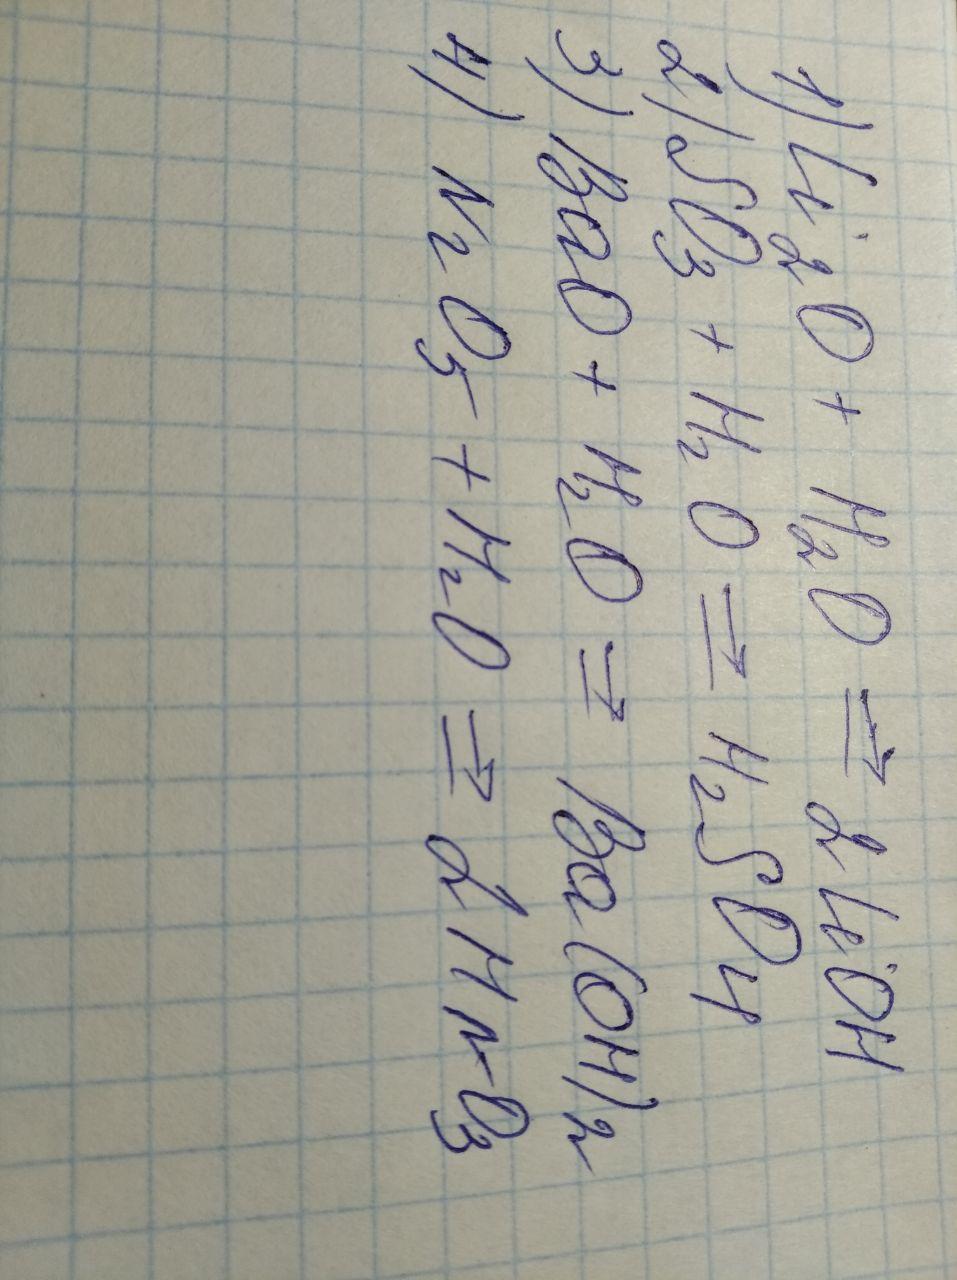 1) Li₂O + H₂O ⇒ 2LiOH
2) SO₃ + H₂O ⇒ H₂SO₄
3) BaO + H₂O ⇒ Ba(OH)₂
4) N₂O₅ + H₂O ⇒ 2HNO₃